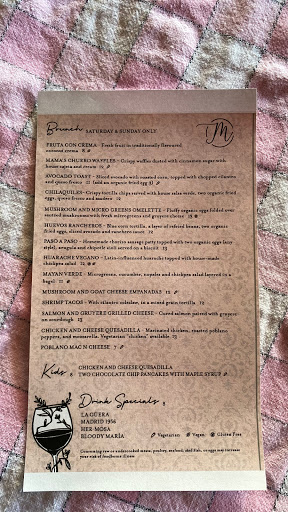 Brunch SATURDAY & SUNDAY ONLY
M
FRUTA CON CREMA - Fresh fruit in traditionally flavoured
coconut crema 8
MAMA'S CHURRO WAFFLES - Crispy waffles dusted with cinnamon sugar with
house cajeta and cream
AVOCADO TOAST - Sliced avocado with roasted corn, topped with chopped cilantro
and queso fresco 11 (add an organic fried egg 3)
CHILAQUILES - Crispy tortilla chips served with house salsa verde, two organic fried
eggs, queso fresco and
MUSHROOM AND MICRO GREENS OMELETTE - Fluffy organic eggs folded over
sautéed mushrooms with fresh microgreens and gruyere cheese
HUEVOS RANCHEROS - Blue corn tortilla, a layer of refried beans, two organic
fried eggs, sliced avocado and ranchero sauce
PASO A PASO - Homemade chorizo sausage patty topped with two organic eggs
arugula and chipotle aioli served on a biscuit 13
HUARACHE VEGANO - Latin-influenced huarache topped with house-made
chickpea salad 12
MAYAN VERDE - Microgreens, cucumber, nopales and chickpea salad layered in a
bagel 11
MUSHROOM AND GOAT CHEESE EMPANADAS 12
SHRIMP TACOS - With cilantro coleslaw, in a mixed grain tortilla 12
SALMON AND GRUYERE GRILLED CHEESE - Cured salmon paired with gruyere
on sourdough 13
CHICKEN AND CHEESE QUESADILLA - Marinated chicken, roasted poblano
peppers, and mozzarella. Vegetarian "chicken" available 12
POBLANO MAC N CHEESE 7
Kids 8 CHICKEN AND CHEESE QUESADILLA
TWO CHOCOLATE CHIP PANCAKES WITH MAPLE SYRUP
Drink Specials 9
LA GÜERA
MADRID 1936
HER-MOSA
BLOODY MARÍA
Vegetarian Vegan Gluten Free
Consuming raw or undercooked meats, poultry, seafood, shellfish, or eggs may increase
your risk of foodborne illness